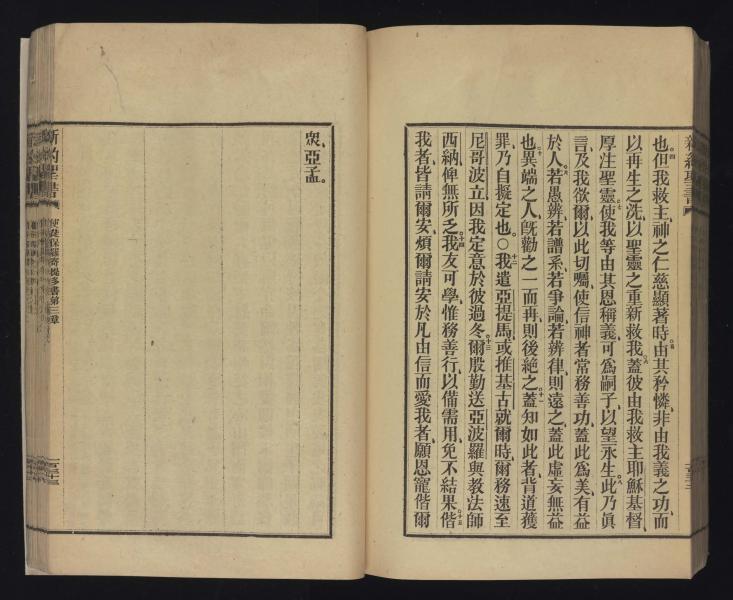 新約聖書
也但我救主神之仁慈顯著時由其矜憐非由我義之功而
以再生之洗以聖靈之重新救我蓋彼由我救主耶穌基督
厚注聖靈使我等由其恩稱義可爲嗣子以望永生此乃眞
言及我欲爾以此切囑使信神者常務善功蓋此爲美有益
於人若愚辨若譜系若爭論若辨律則遠之蓋此虛妄無益
也異端之人旣勸之一而再則後絕之蓋知如此者背道獲
罪乃自擬定也○我遣亞提馬或推基古就爾時爾務速至
尼哥波立因我定意於彼過冬爾殷勤送亞波羅與教法師
西納俾無所乏我友可學惟務善行以備需用免不結果偕
我者皆請爾安煩爾請安於凡由信而愛我者願恩寵偕爾
衆亞孟
新約聖書
使徒保羅寄提多書第三章